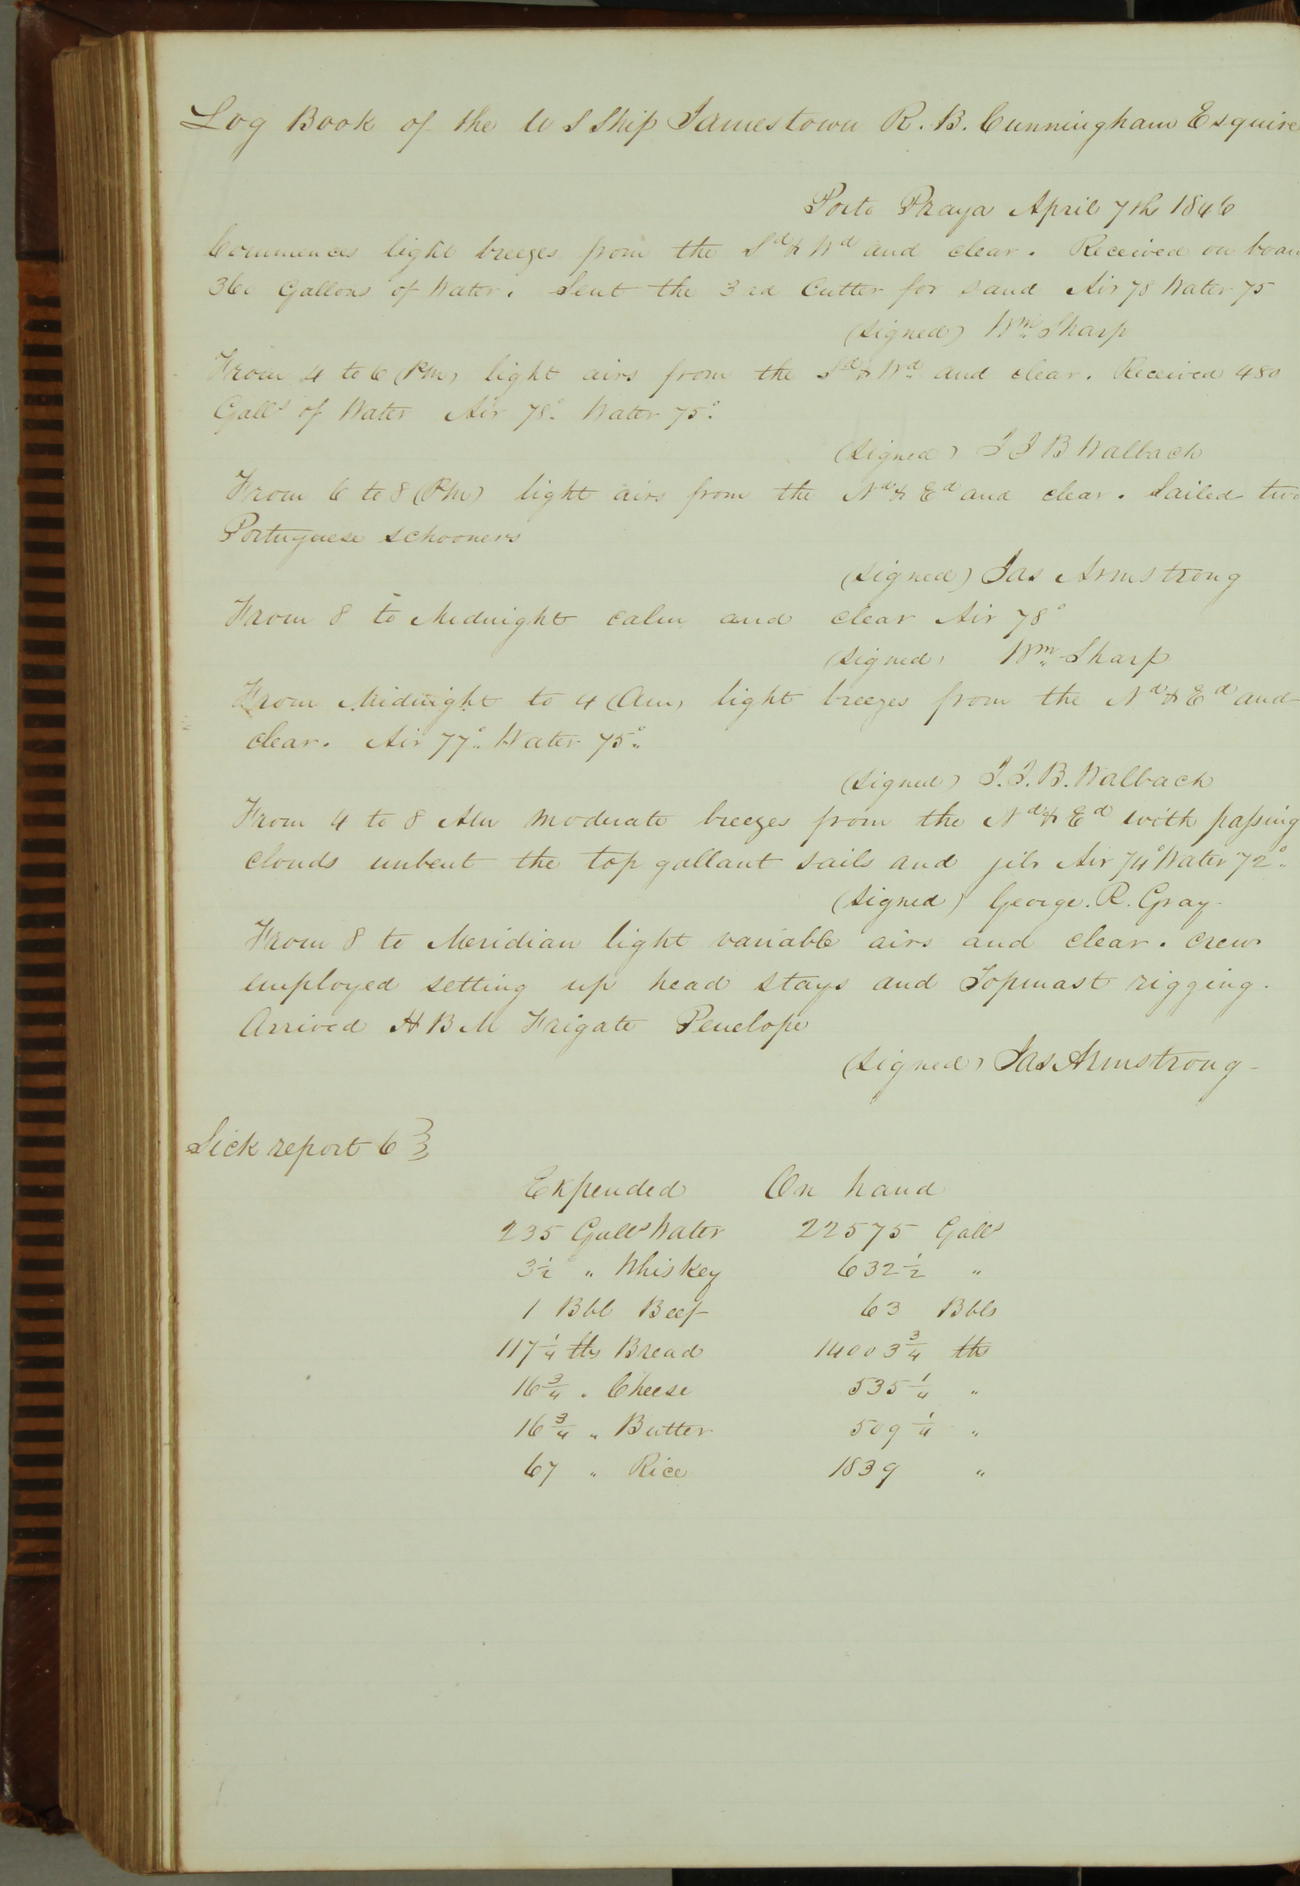 Log Book of the U S Ship Jamestown R. B. Cunningham Esquire
Porto Praya April 7th 1846
Commences light breezes from the Sd & Wd and clear. Received on boar
360 Gallons of Water. Sent the 3rd Cutter for sand Air 78 Water 75
(signed) Wm Sharp
From 4 to 6 (Pm) light airs from the Sd & Wd and clear. Received 480
Galls of Water Air 78° Water 75°
(signed) J J B Walbach
From 6 to 8 (Pm) light airs from the Nd & Ed and clear. Sailed two
Portuguese schooners
(signed) Jas Armstrong
From 8 to Midnight calm and clear Air 78°
(signed) Wm Sharp
From Midnight to 4 (Am) light breezes from the Nd & Ed and
clear. Air 77° Water 75°
(signed) J. J. B. Walbach
From 4 to 8 Am moderate breezes from the Nd & Ed with passing
clouds unbent the top gallant sails and jib Air 74° Water 72°
(signed) George. R. Gray
From 8 to Meridian light variable airs and clear. crew
employed setting up head stays and Topmast rigging.
Arrived H B M Frigate Penelope
(signed) Jas Armstrong
Sick report 6
Expended On hand
235 Galls Water 22575 Galls
3 1/2 " Whiskey 632 1/2 "
1 Bbl Beef 63 Bbls
117 1/4 lbs Bread 14003 3/4 lbs
16 3/4 " Cheese 535 1/4 "
16 3/4 " Butter 509 1/4 "
67 " Rice 1839 "